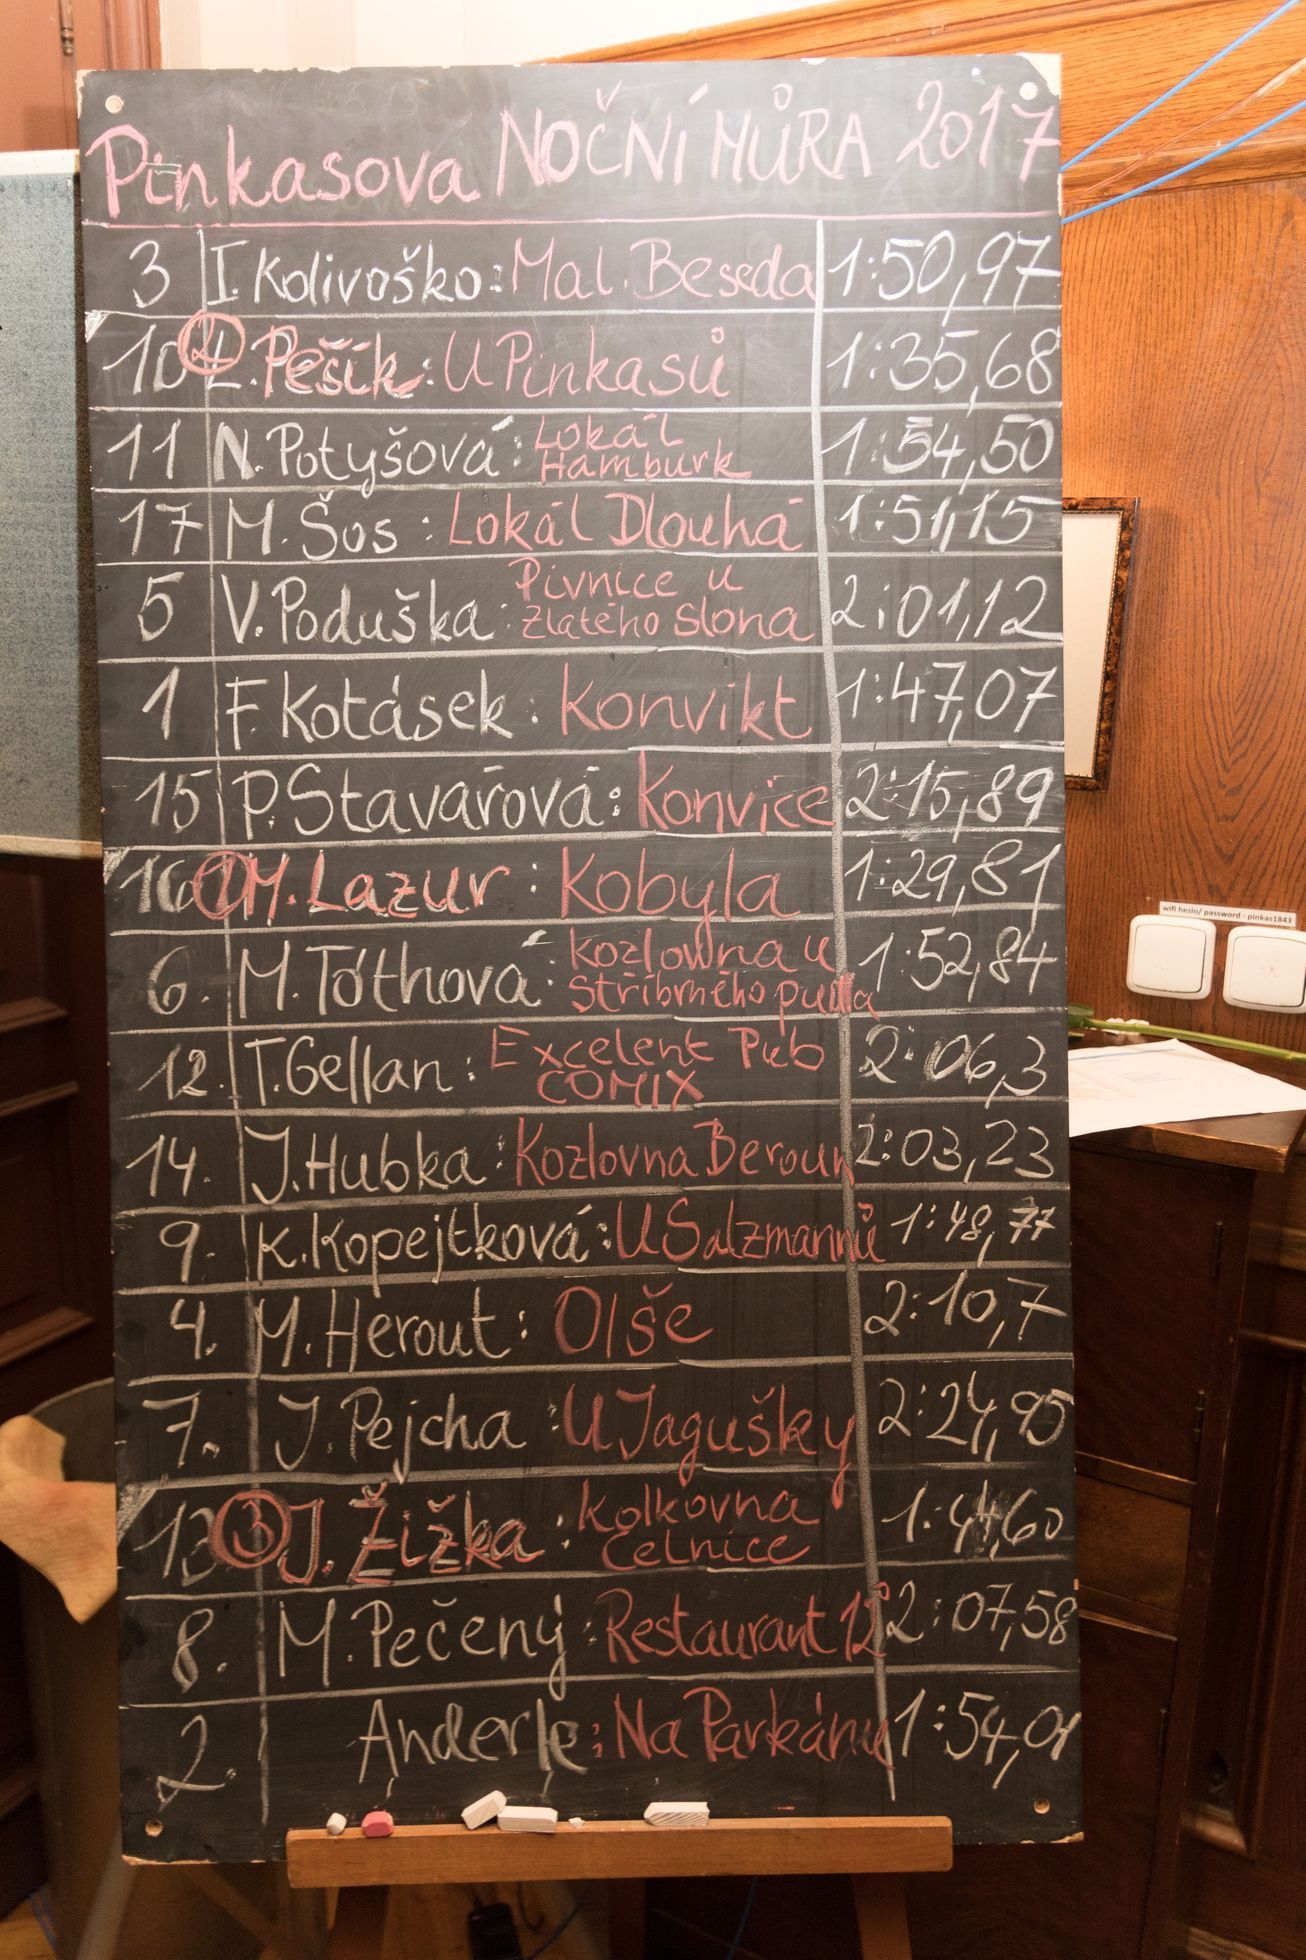 Pinkasova NOČNÍ MŮRA 2017
3 I. Kolivoško: Mal. Beseda 1:50,97
10 2 L. Pešík: U Pinkasů 1:35,68
11 N. Potyšová: Lokál Hamburk 1:54,50
17 M. Šos: Lokál Dlouhá 1:51,15
5 V. Poduška: Pivnice u Zlatého slona 2:01,12
1 F. Kotásek: Konvikt 1:47,07
15 P. Stavařová: Konvice 2:15,89
16 1 M. Lazur: Kobyla 1:29,81
6. M. Tóthová: Kozlowna u Stříbrného pudla 1:52,84
12. T. Gellan: Excelent Pub COMIX 2:06,3
14. J. Hubka: Kozlovna Beroun 2:03,23
9. K. Kopejtková: U Salzmannů 1:48,77
4. M. Herout: Olše 2:10,7
7. J. Pejcha: U Jagušky 2:24,95
13 3 J. Žižka: Kolkovna Celnice 1:44,60
8. M. Pečený: Restaurant 12 2:07,58
2. Anderle: Na Parkánu 1:54,01
wifi heslo/ password - pinkas1843